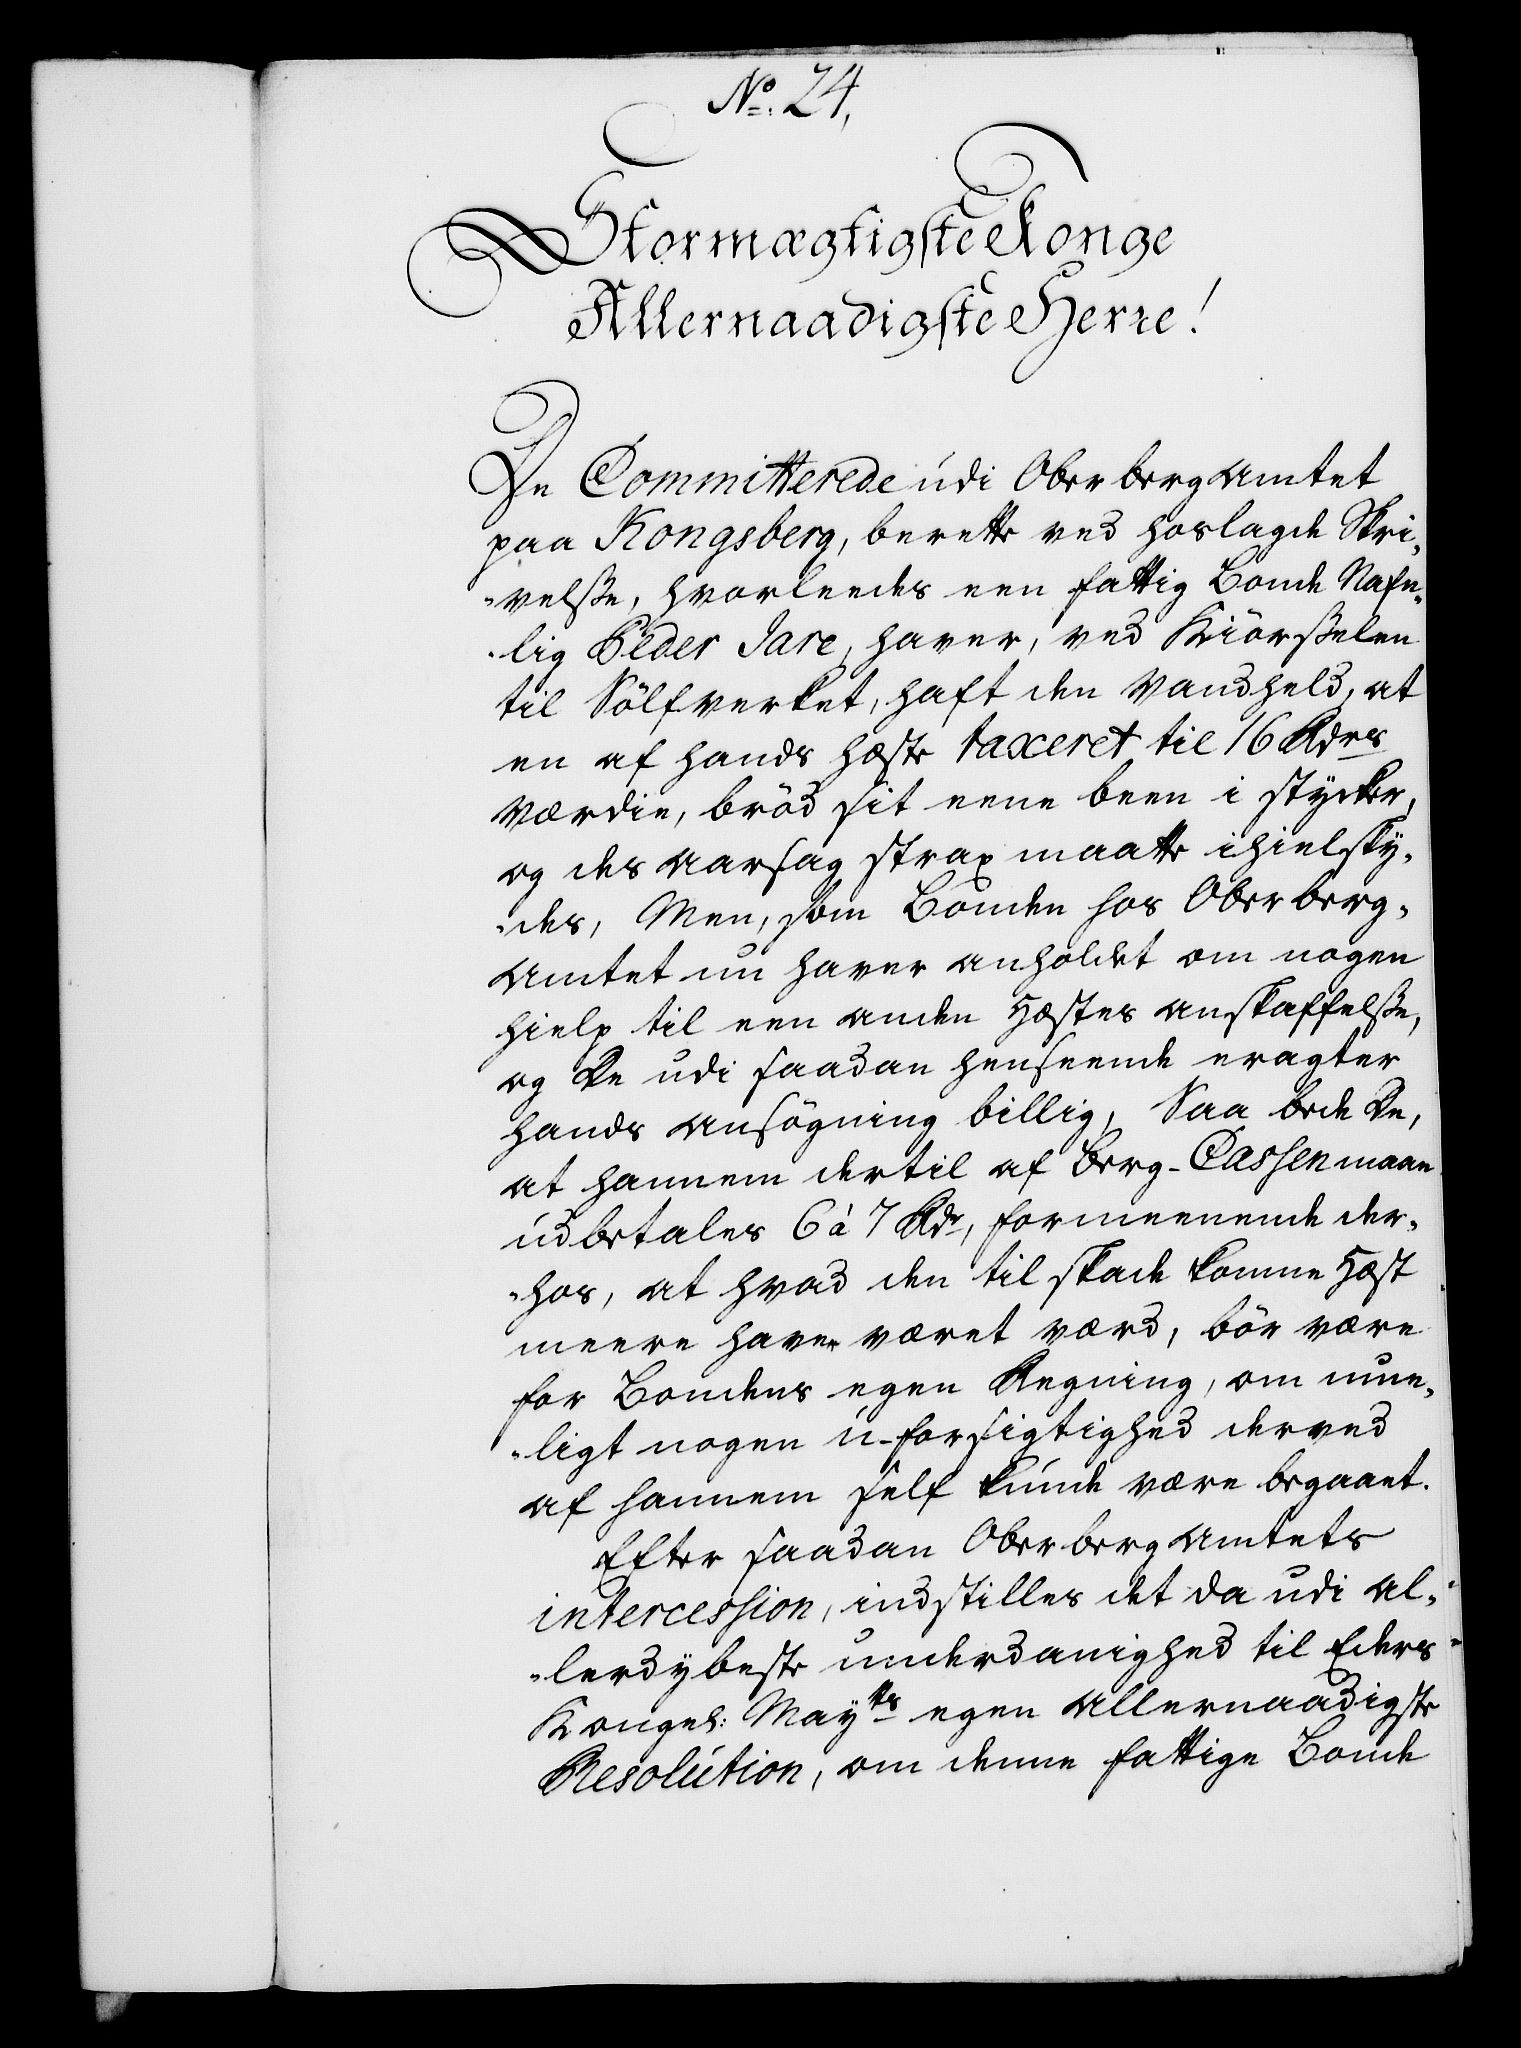 No: 24,
Stormægtigste Konge
Allernaadigste Herre!
De Committerede udi Oberbergamtet
paa Kongsberg, berette ved hoslagde Skri„
„velsße, hvorleedes een fattig Bonde Nafn„
„lig Peder Jare, haver, ved Kiörßelen
til Sölfverket, haft den Vandheld, at
en af hands hæste taxeret til 16 Rdrs
værdie, bröd sit eene been i stycker,
og des aarsag strax maatte ihielsky„
„des, Men, som Bonden hos Oberberg„
Amtet nu haver anholdet om nogen
hielp til een anden Hæstes anskaffelße,
og De udi saadan henseende eragter
hands ansögning billig, Saa bede De,
at hannem dertil af Berg-Cassen maae
udbetales 6 à 7 Rdr, formeenende der„
„hos, at hvad den til skade komne Hæst
meere haver været værd, bör være
for Bondens egen Regning, om mue„
„ligt nogen u-forsigtighed derved
af hannem self kunde være begaaet.
Efter saadan Oberberg Amtets
intercession, indstilles det da udi al„
„lerdybeste underdanighed til Eders
Kongel: Mayts egen allernaadigste
Resolution, om denne fattige Bonde